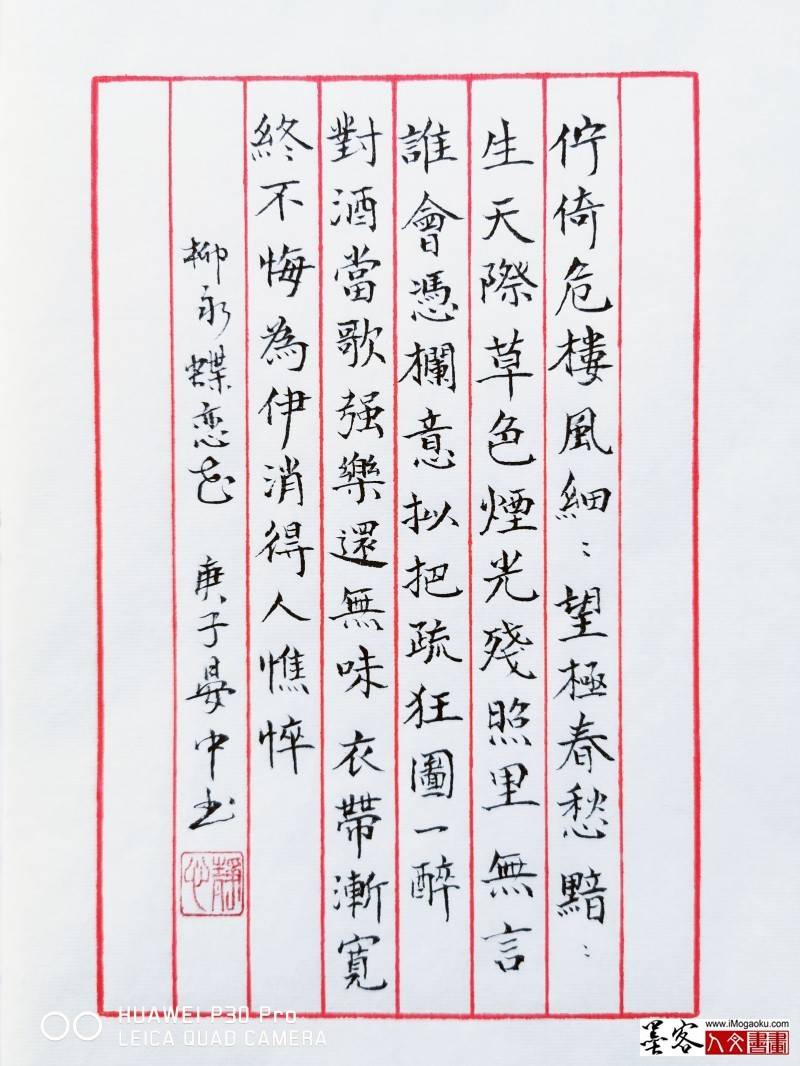 佇倚危樓風細:望極春愁黯:
生天際草色煙光殘照里無言
誰會憑欄意拟把疏狂圖一醉
對酒當歌强樂還無味衣帶漸寬
終不悔為伊消得人憔悴
柳永蝶恋花 庚子晏中书
靜心
HUAWEI P30 Pro
LEICA QUAD CAMERA
墨客
www.iMogaoku.com
人文書畫